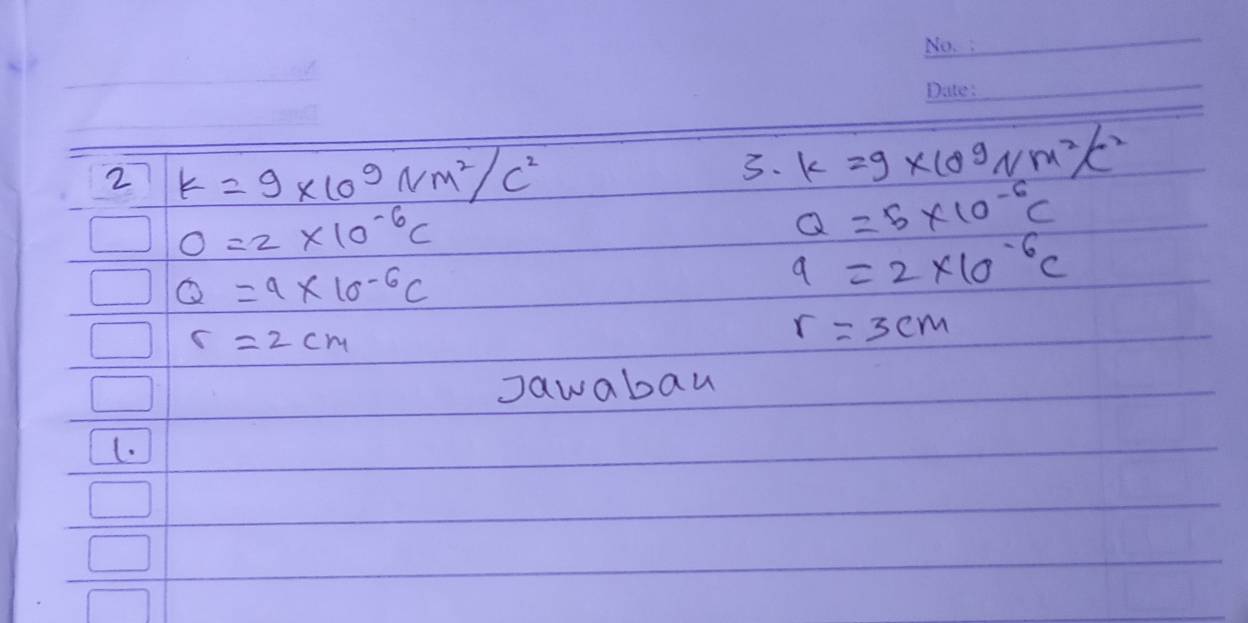 No. :
Date:
2 k = 9 × 10⁹ Nm²/C²
O = 2 × 10⁻⁶ C
Q = 9 × 10⁻⁶ C
r = 2 cm
3. k = 9 × 10⁹ Nm²/C²
Q = 5 × 10⁻⁶ C
q = 2 × 10⁻⁶ C
r = 3 cm
Jawaban
1.